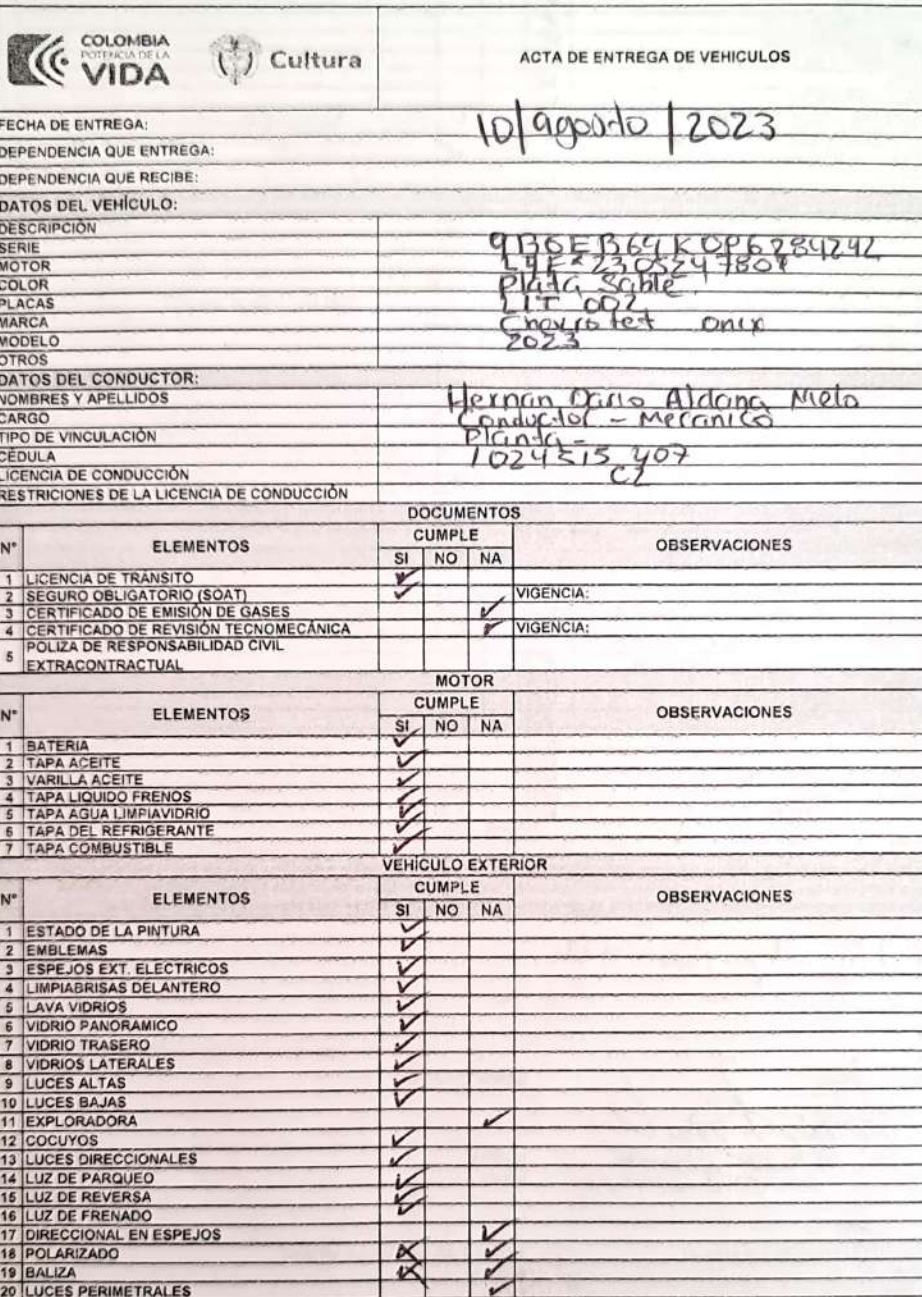 COLOMBIA
POTENCIA DE LA
VIDA
Cultura
ACTA DE ENTREGA DE VEHICULOS
FECHA DE ENTREGA: 10/agosto/2023
DEPENDENCIA QUE ENTREGA:
DEPENDENCIA QUE RECIBE:
DATOS DEL VEHÍCULO:
DESCRIPCIÓN
SERIE
MOTOR
COLOR Plata Sable
PLACAS LIT 002
MARCA Chevrolet onix
MODELO 2023
OTROS
DATOS DEL CONDUCTOR:
NOMBRES Y APELLIDOS Hernan Dario Aldana Melo
CARGO Conductor - Mecanico
TIPO DE VINCULACIÓN Planta -
CÉDULA 1024515 407
LICENCIA DE CONDUCCIÓN C2
RESTRICIONES DE LA LICENCIA DE CONDUCCIÓN
DOCUMENTOS
N° ELEMENTOS CUMPLE OBSERVACIONES
SI NO NA
1 LICENCIA DE TRÁNSITO ✓
2 SEGURO OBLIGATORIO (SOAT) ✓ VIGENCIA:
3 CERTIFICADO DE EMISIÓN DE GASES ✓
4 CERTIFICADO DE REVISIÓN TECNOMECÁNICA ✓ VIGENCIA:
5 POLIZA DE RESPONSABILIDAD CIVIL
EXTRACONTRACTUAL
MOTOR
N° ELEMENTOS CUMPLE OBSERVACIONES
SI NO NA
1 BATERIA ✓
2 TAPA ACEITE ✓
3 VARILLA ACEITE ✓
4 TAPA LIQUIDO FRENOS ✓
5 TAPA AGUA LIMPIAVIDRIO ✓
6 TAPA DEL REFRIGERANTE ✓
7 TAPA COMBUSTIBLE ✓
VEHÍCULO EXTERIOR
N° ELEMENTOS CUMPLE OBSERVACIONES
SI NO NA
1 ESTADO DE LA PINTURA ✓
2 EMBLEMAS ✓
3 ESPEJOS EXT. ELECTRICOS ✓
4 LIMPIABRISAS DELANTERO ✓
5 LAVA VIDRIOS ✓
6 VIDRIO PANORAMICO ✓
7 VIDRIO TRASERO ✓
8 VIDRIOS LATERALES ✓
9 LUCES ALTAS ✓
10 LUCES BAJAS ✓
11 EXPLORADORA ✓
12 COCUYOS ✓
13 LUCES DIRECCIONALES ✓
14 LUZ DE PARQUEO ✓
15 LUZ DE REVERSA ✓
16 LUZ DE FRENADO ✓
17 DIRECCIONAL EN ESPEJOS ✓
18 POLARIZADO ✓
19 BALIZA ✓
20 LUCES PERIMETRALES ✓